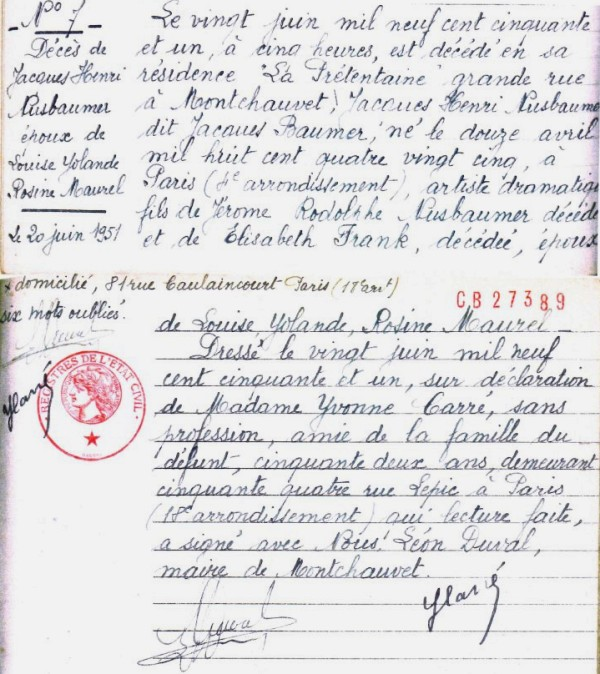 Nº 7
Décès de
Jacques Henri
Nusbaumer
époux de
Louise Yolande
Rosine Maurel
Le 20 juin 1951
Le vingt juin mil neuf cent cinquante
et un, à cinq heures, est décédé en sa
résidence "La Prétentaine" grande rue
à Montchauvet, Jacques Henri Nusbaumer
dit Jacques Baumer, né le douze avril
mil huit cent quatre vingt cinq, à
Paris (8e arrondissement), artiste dramatique
fils de Jérome Rodolphe Nusbaumer décédé
et de Élisabeth Frank, décédée, époux
x domicilié, 81 rue Caulaincourt Paris (18e arrt)
six mots oubliés.
CB 27389
REGISTRES DE L'ETAT CIVIL
YCarré
de Louise, Yolande, Rosine Maurel_
Dressé le vingt juin mil neuf
cent cinquante et un, sur déclaration
de Madame Yvonne Carre, sans
profession, amie de la famille du
défunt, cinquante deux ans, demeurant
cinquante quatre rue Lepic à Paris
(18e arrondissement) qui lecture faite,
a signé avec Nous. Léon Duval,
maire de Montchauvet.
YCarré